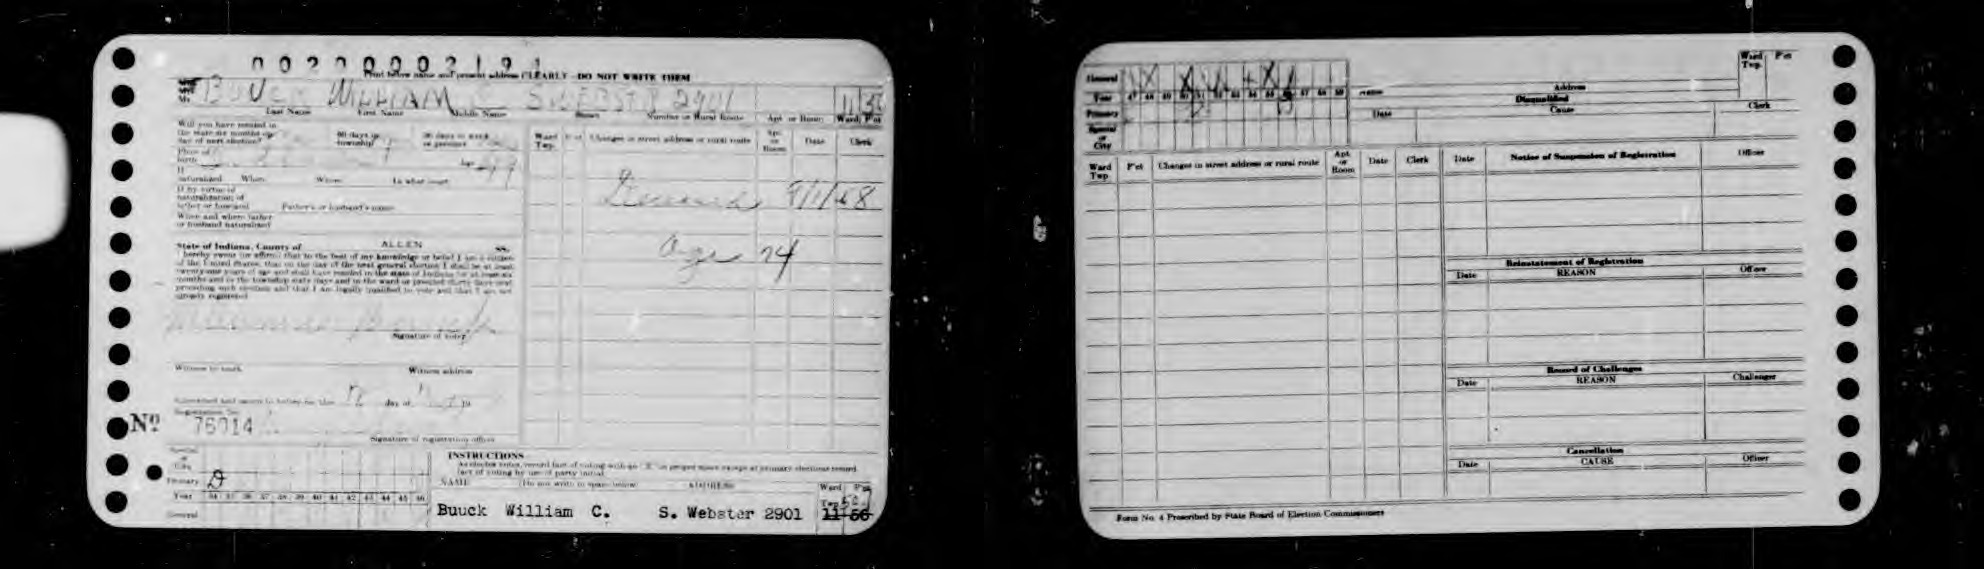 0020000219
Print below name and present address CLEARLY—DO NOT WRITE THEM
Mr. BUUCK WILLIAM C. S. WEBSTER 2901 11
Last Name First Name Middle Name Street Number or Rural Route Apt. or Room Ward P'ct
Will you have resided in
the state six months on
day of next election?
60 days in
township?
30 days in ward
or precinct
Place of
birth
Age 49
If
naturalized When Where In what court
If by virtue of
naturalization of
father or husband Father's or husband's name
When and where father
or husband naturalized
State of Indiana, County of ALLEN ss.
I hereby swear (or affirm) that to the best of my knowledge or belief I am a citizen
of the United States, that on the day of the next general election I shall be at least
twenty-one years of age and shall have resided in the state of Indiana for at least six
months and in the township sixty days and in the ward or precinct thirty days next
preceding such election and that I am legally qualified to vote and that I am not
already registered
Signature of voter
Witness to mark Witness address
Subscribed and sworn to before me this day of 19
Registration No.
No 76014
Signature of registration officer
Special
or
City
Primary D
Year 34 35 36 37 38 39 40 41 42 43 44 45 46
General
Ward
Twp.
P'ct Changes in street address or rural route Apt.
or
Room
Date Clerk
Deceased 9/1/58
age 74
INSTRUCTIONS
As elector votes, record fact of voting with an "X" in proper space except at primary elections record
fact of voting by use of party initial.
NAME (Do not write in space below) ADDRESS
Ward P'ct
Twp.
Buuck William C. S. Webster 2901 11 56
General X X X
Year 47 48 49 50 51 52 53 54 55 56 57 58 59
Primary
Special
or
City
Ward
Twp.
P'ct
Name Address
Disqualified
Date Cause Clerk
Ward
Twp.
P'ct Changes in street address or rural route Apt.
or
Room
Date Clerk
Date Notice of Suspension of Registration Officer
Reinstatement of Registration
Date REASON Officer
Record of Challenges
Date REASON Challenger
Cancellation
Date CAUSE Officer
Form No. 4 Prescribed by State Board of Election Commissioners